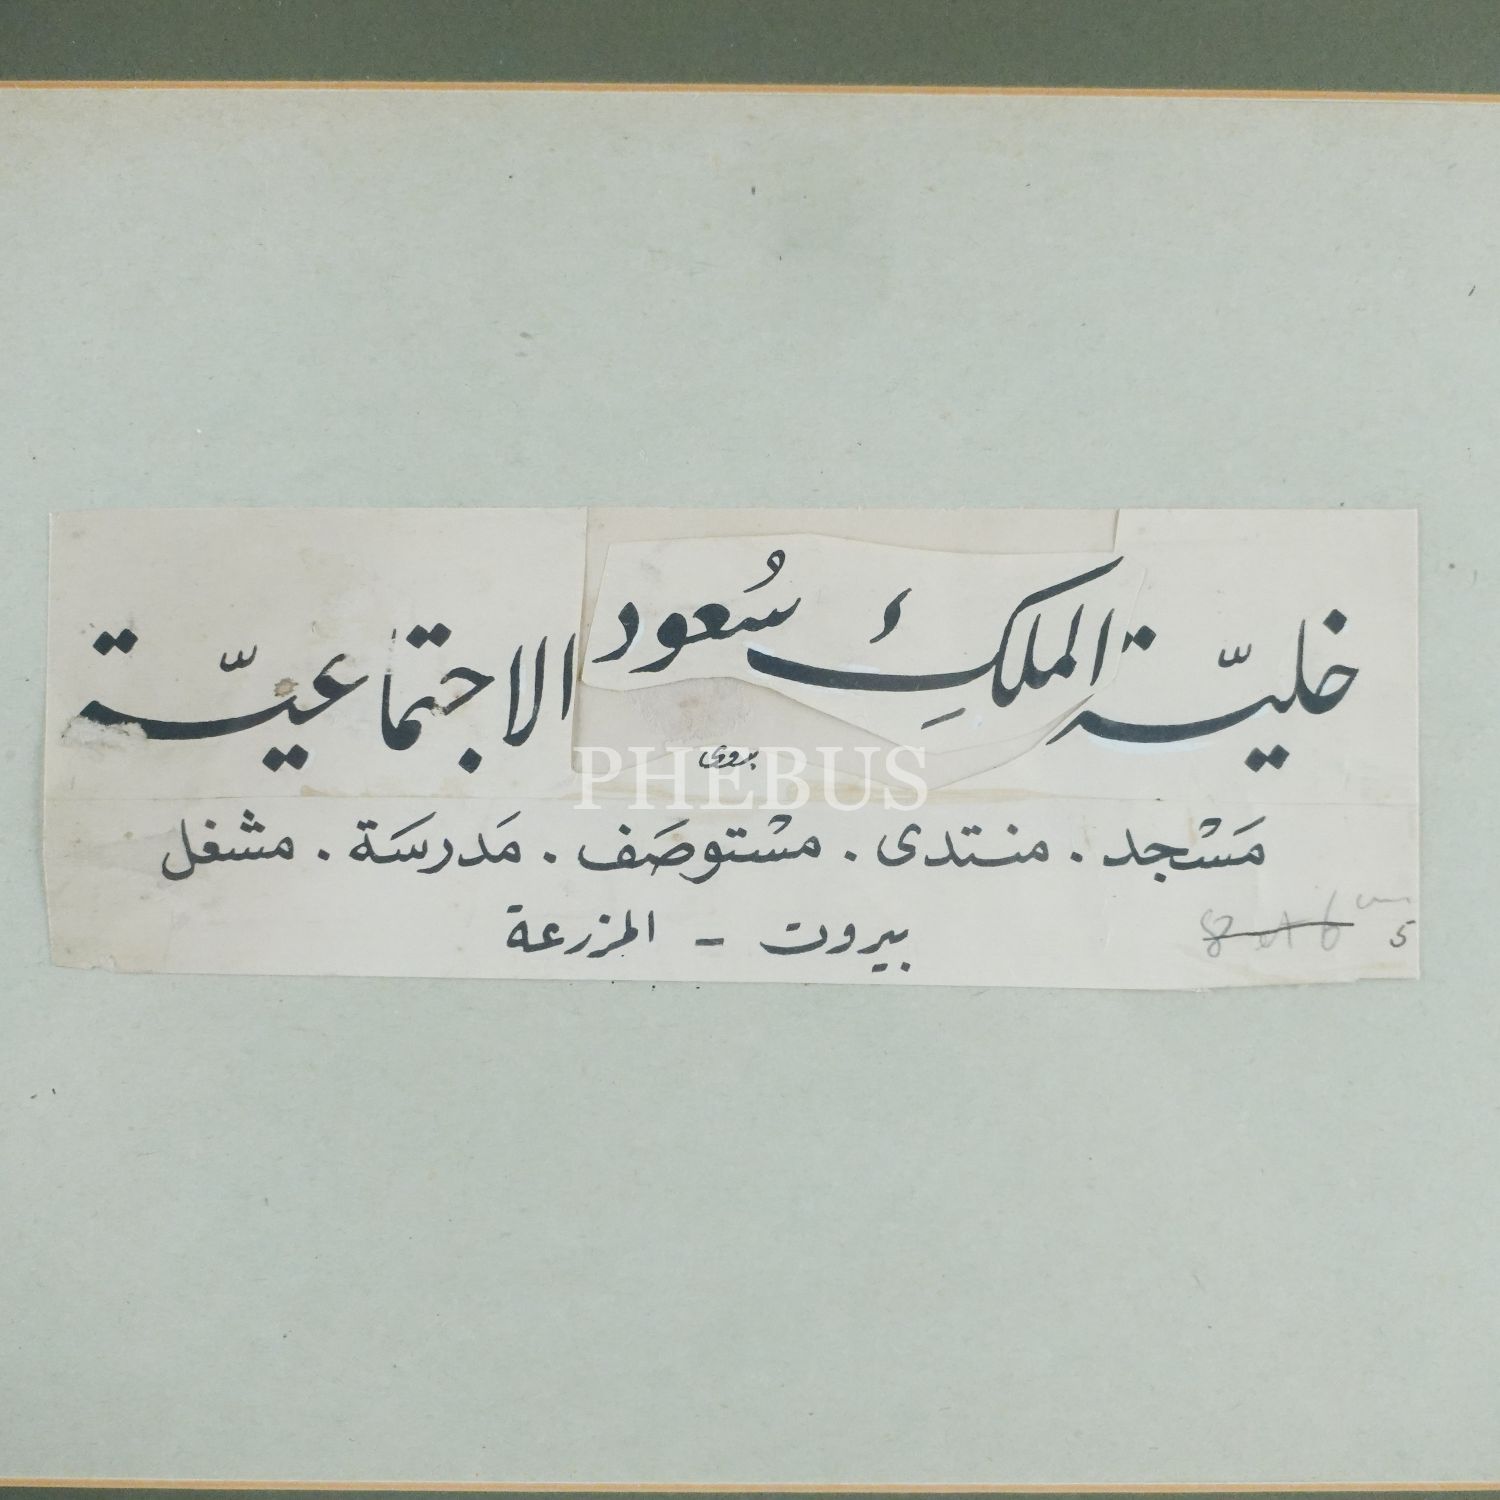 خليّة الملكِ سُعود الاجتماعيّة
بدوي
PHEBUS
مَسْجد . منتدى . مسْتوصَف . مَدرسَة . مشغل
بيروت - المزرعة
5